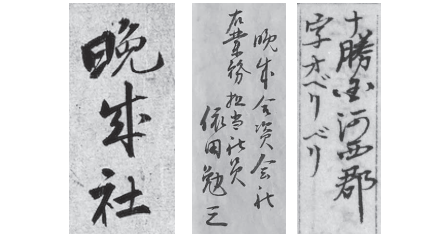 晩成社
晩成合資会社
右業務担当社員
依田勉三
十勝国河西郡
字オベリベリ